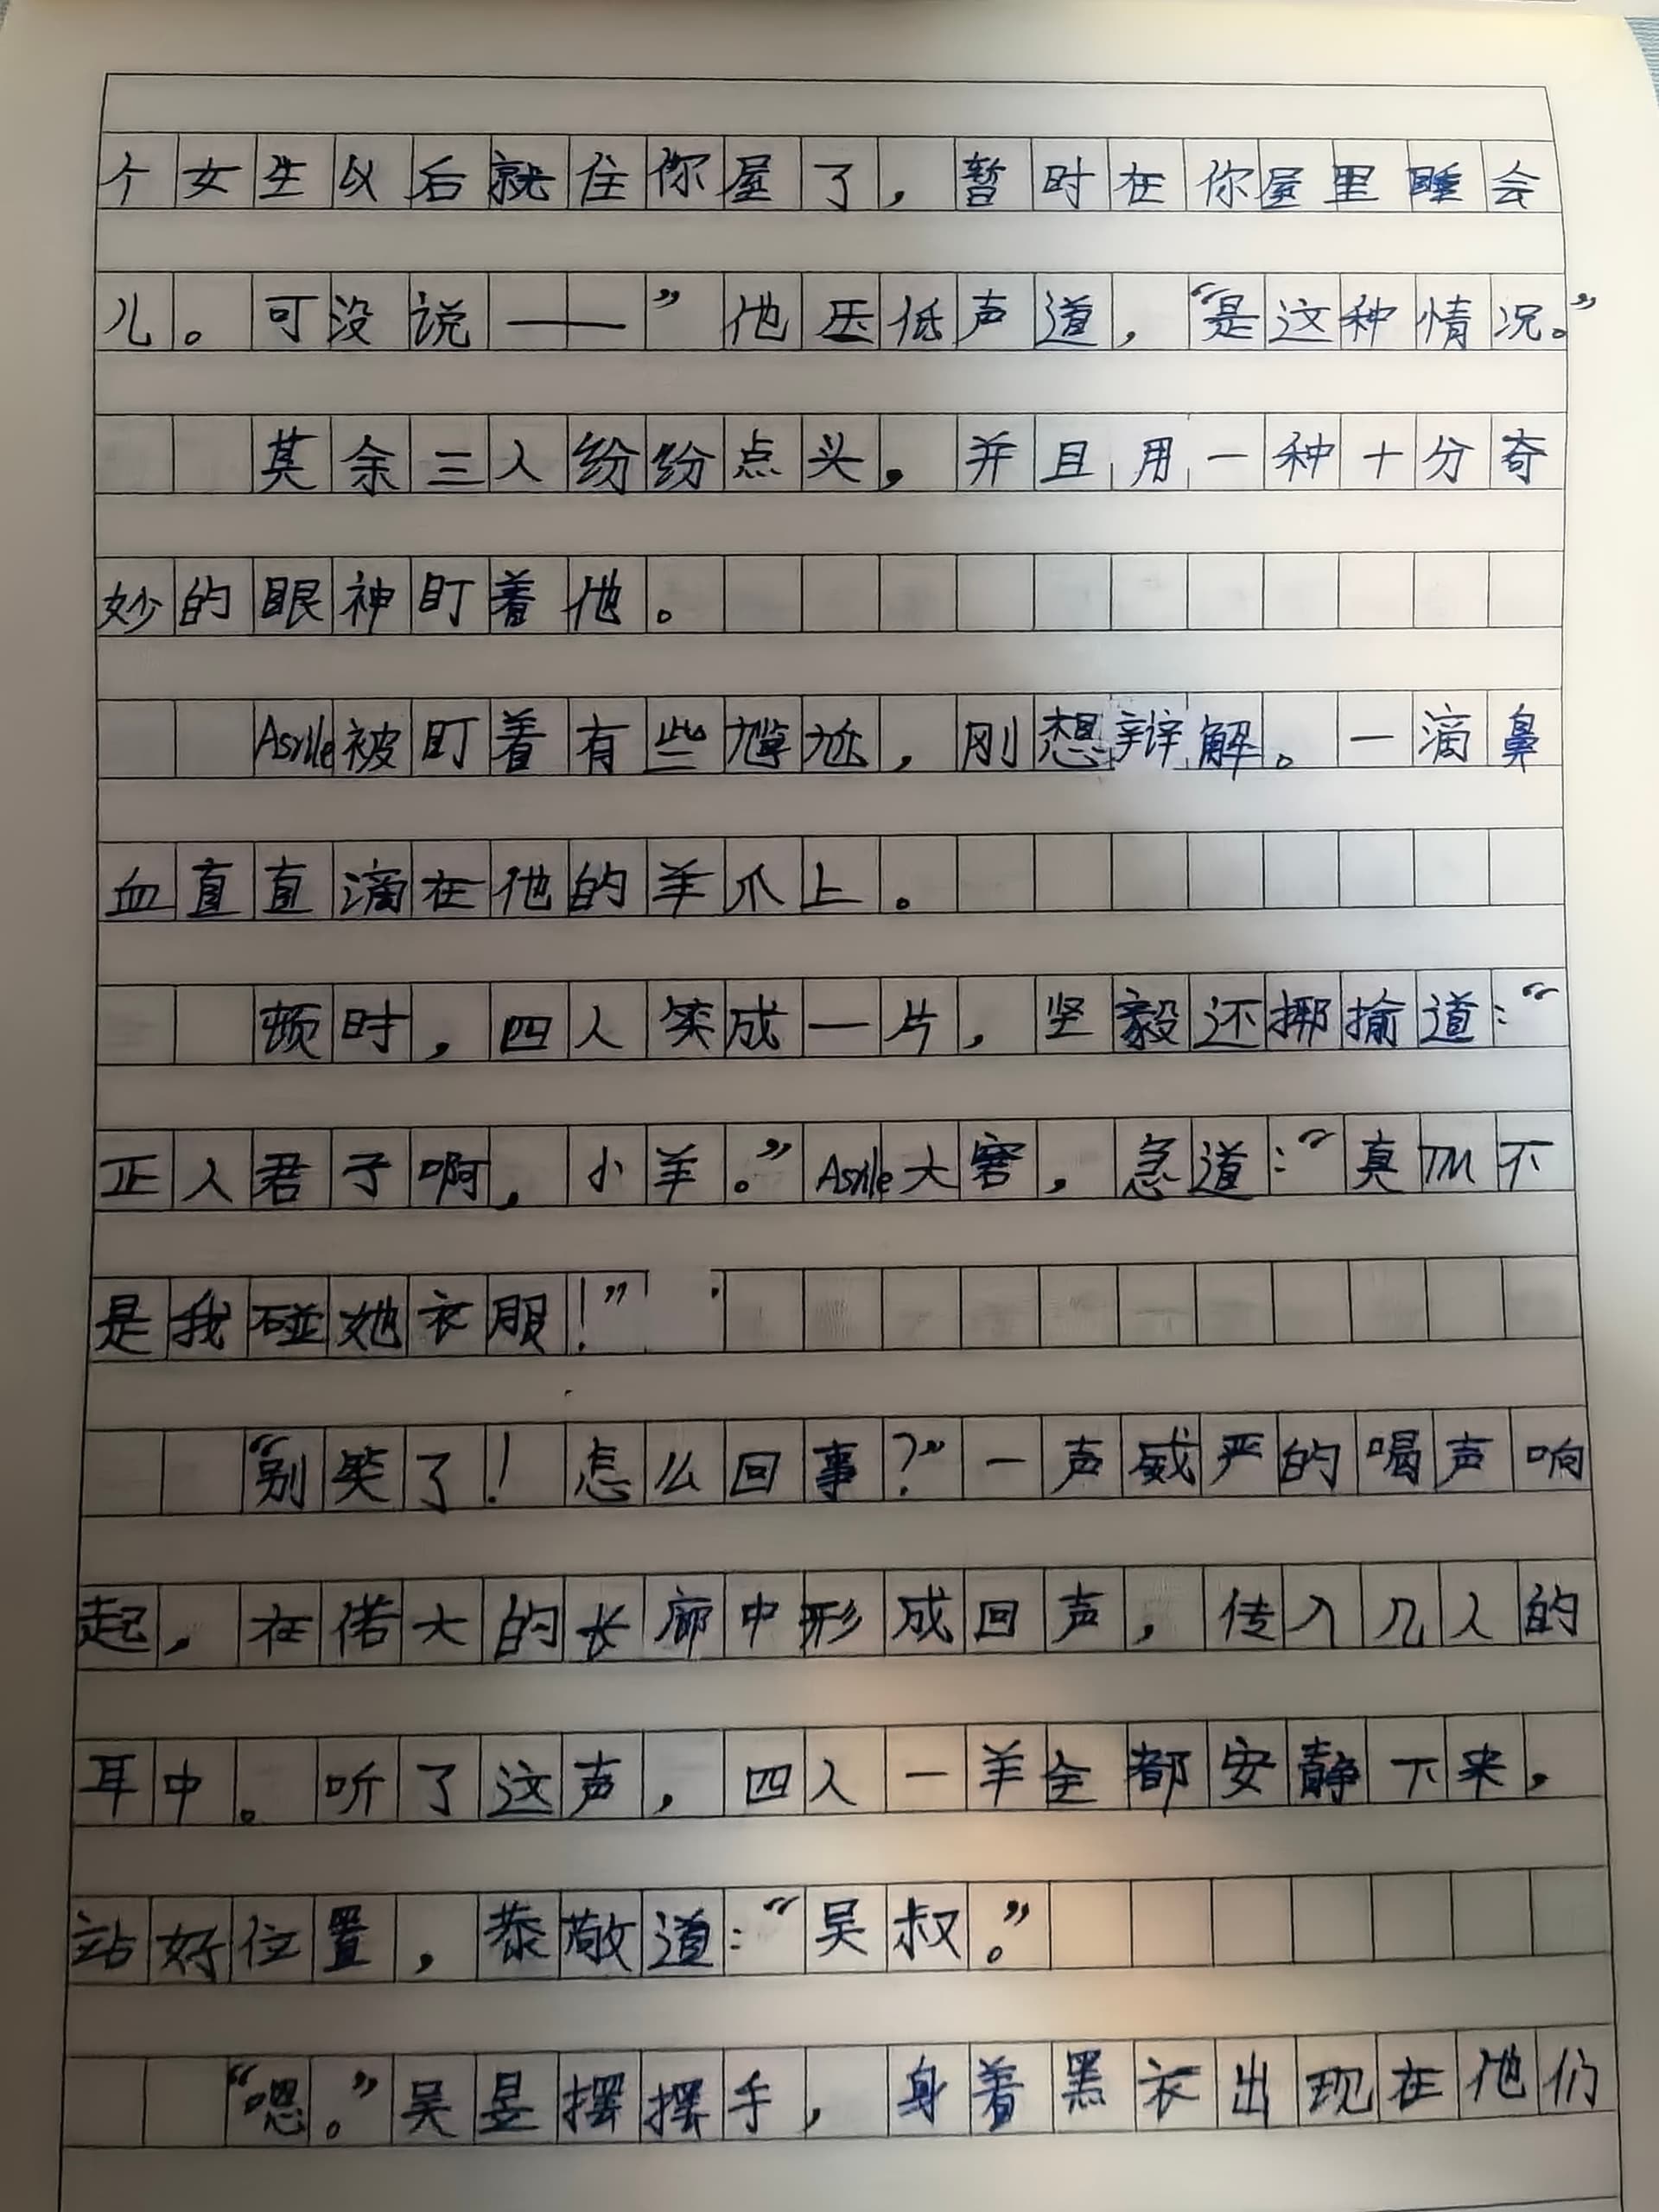 个女生以后就住你屋了，暂时在你屋里睡会
儿。可没说——”他压低声道，“是这种情况。”
其余三人纷纷点头，并且用一种十分奇
妙的眼神盯着他。
Asrile被盯着有些尴尬，刚想辩解。一滴鼻
血直直滴在他的羊爪上。
顿时，四人笑成一片，坚毅还揶揄道：“
正人君子啊，小羊。”Asrile大窘，急道：“真TM不
是我碰她衣服！”
“别笑了！怎么回事？”一声威严的喝声响
起，在偌大的长廊中形成回声，传入几人的
耳中。听了这声，四人一羊全都安静下来，
站好位置，恭敬道：“吴叔。”
“嗯。”吴昱摆摆手，身着黑衣出现在他们